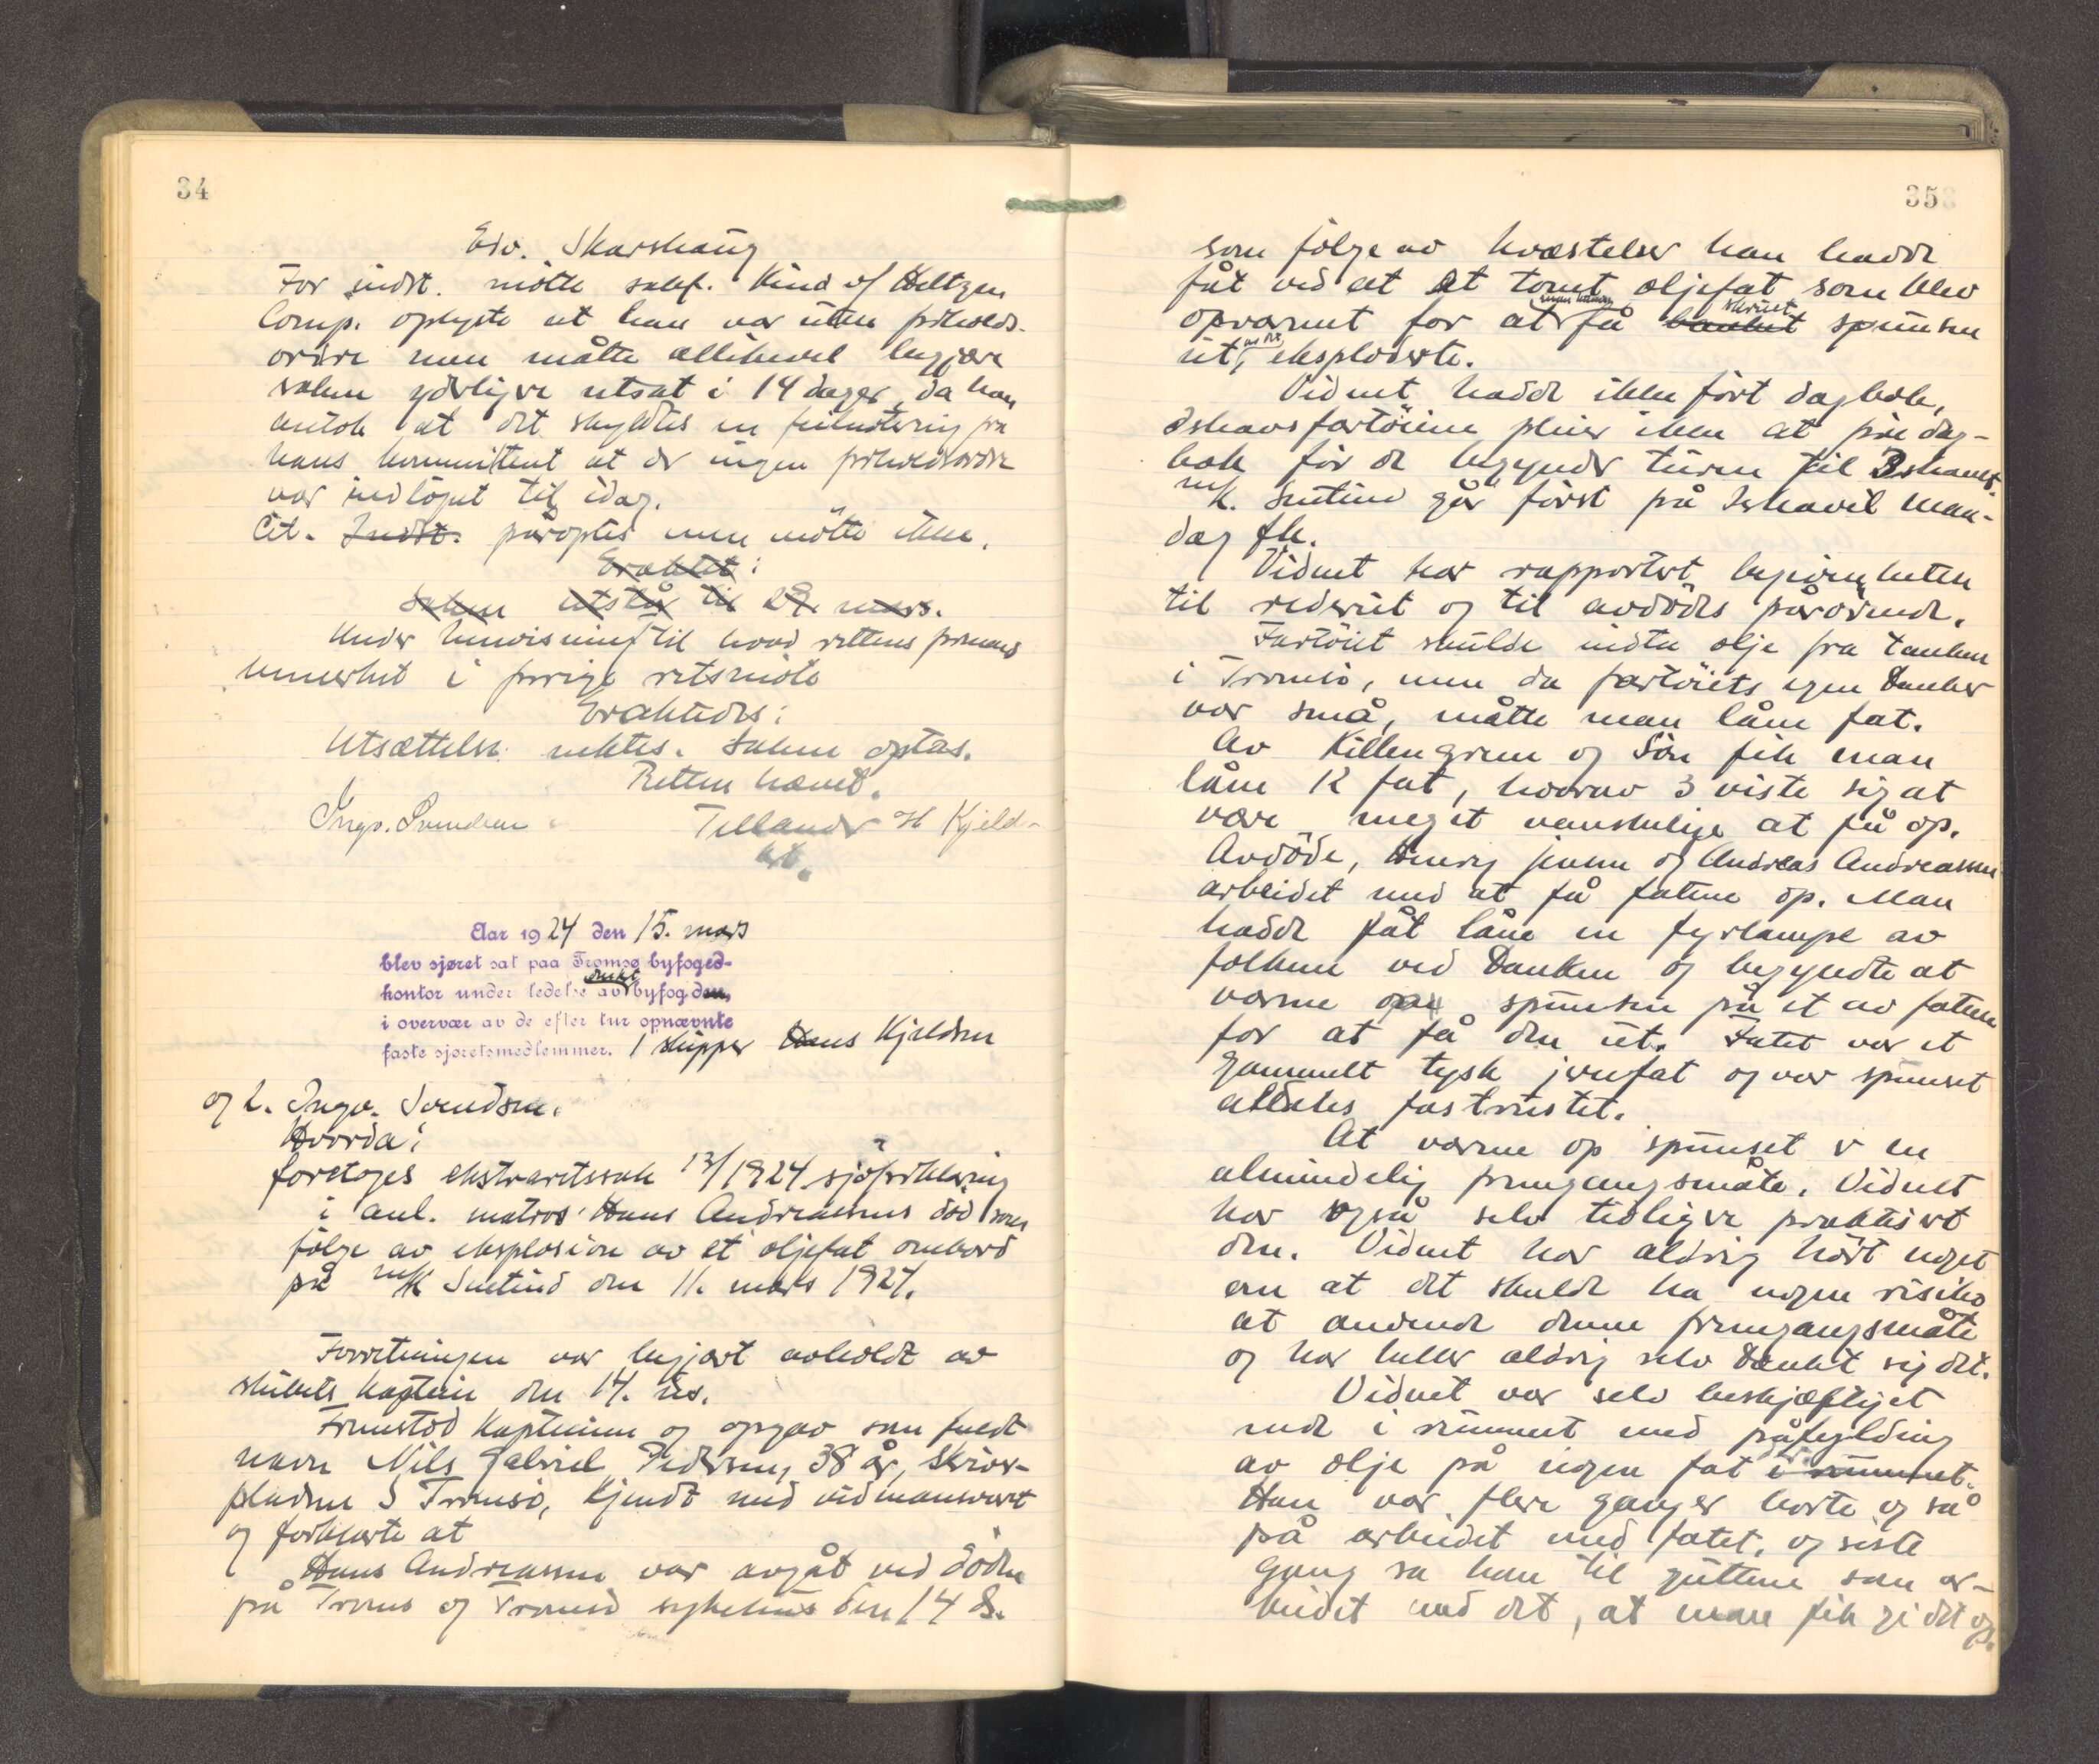 34
Edv. Skarshaug
For indst. møtte sakf. Kind o/ Heltzen
Comp. oplyste at han var uten forholds-
ordre men måtte allikevel begjære
saken yderligere utsat i 14 dager, da han
antok at det skyldtes en feilnotering fra
hans kommittent at der ingen forholdsordre
var indløpet til idag.
Cit. Indst. påroptes men møtte ikke.
Eraktet:
Saken utstår til 29. mars.
Under henvisning til hvad rettens formand
bemerket i forrige retsmøte
Eraktedes:
Utsættelse nektes. Saken optas.
Retten hævet.
Ingv. Svendsen H Kjeld-
Aar 1924 den 15. mars
blev sjøret sat paa Tromsø byfoged-
kontor under ledelse av byfogden,
i overvær av de efter tur opnævnte
faste sjøretsmedlemmer. 1 skipper Hans Kjeldsen
og 2. Ingv. Svendsen.
Hvorda:
foretoges ekstraretssak 13/1924 sjøforklaring
i anl. matros Hans Andreassens død som
følge av eksplosion av et oljefat ombord
på m/k Snetind den 11. mars 1924.
Forretningen var begjært avholdt av
skibets kaptein den 14. ds.
Fremstod kapteinen og opgav som fuldt
navn Nils Gabriel Pedersen, 38 år, Skriver-
pladsen 5 Tromsø, kjendt med vidneansvaret
og forklarte at
Hans Andreassen var avgåt ved døden
på Troms og Tromsø sykehus den 14 ds.
35
som følge av kvæstelser han hadde
fåt ved at et tomt oljefat som blev
opvarmet for at få skruet spunsen
ut, eksploderte.
Vidnet hadde ikke ført dagbok,
Ishavsfartøiene pleier ikke at føre dag-
bok før de begynder turen til Ishavet.
m/k. Snetind går først på Ishavet man-
dag flk.
Vidnet har rapportert begivenheten
til rederiet og til avdødes pårørende.
Fartøiet skulde indta olje fra tanken
i Tromsø, men da fartøiets egen tanker
var små, måtte man låne fat.
Av Killengreen og Søn fik man
låne 12 fat, hvorav 3 viste sig at
være meget vanskelige at få op.
Avdøde, Henry Jensen og Andreas Andreassen
arbeidet med at få fatene op. Man
hadde fåt låne en fyrlampe av
folkene ved tanken og begyndte at
varme spunsen på et av fatene
for at få den ut. Fatet var et
gammelt tysk jernfat og var spunset
aldeles fastrustet.
At varme op spunset er en
almindelig fremgangsmåte. Vidnet
har også selv tidligere praktisert
den. Vidnet har aldrig hørt noget
om at det skulde ha nogen risiko
at anvende denne fremgangsmåte
og har heller aldrig selv tænkt sig det.
Vidnet var selv beskjæftiget
nede i rummet med påfylding
av olje på nogen fat i rummet.
Han var flere ganger borte og så
på arbeidet med fatet, og siste
gang sa han til guttene som ar-
beidet med det, at man fik gi det op.